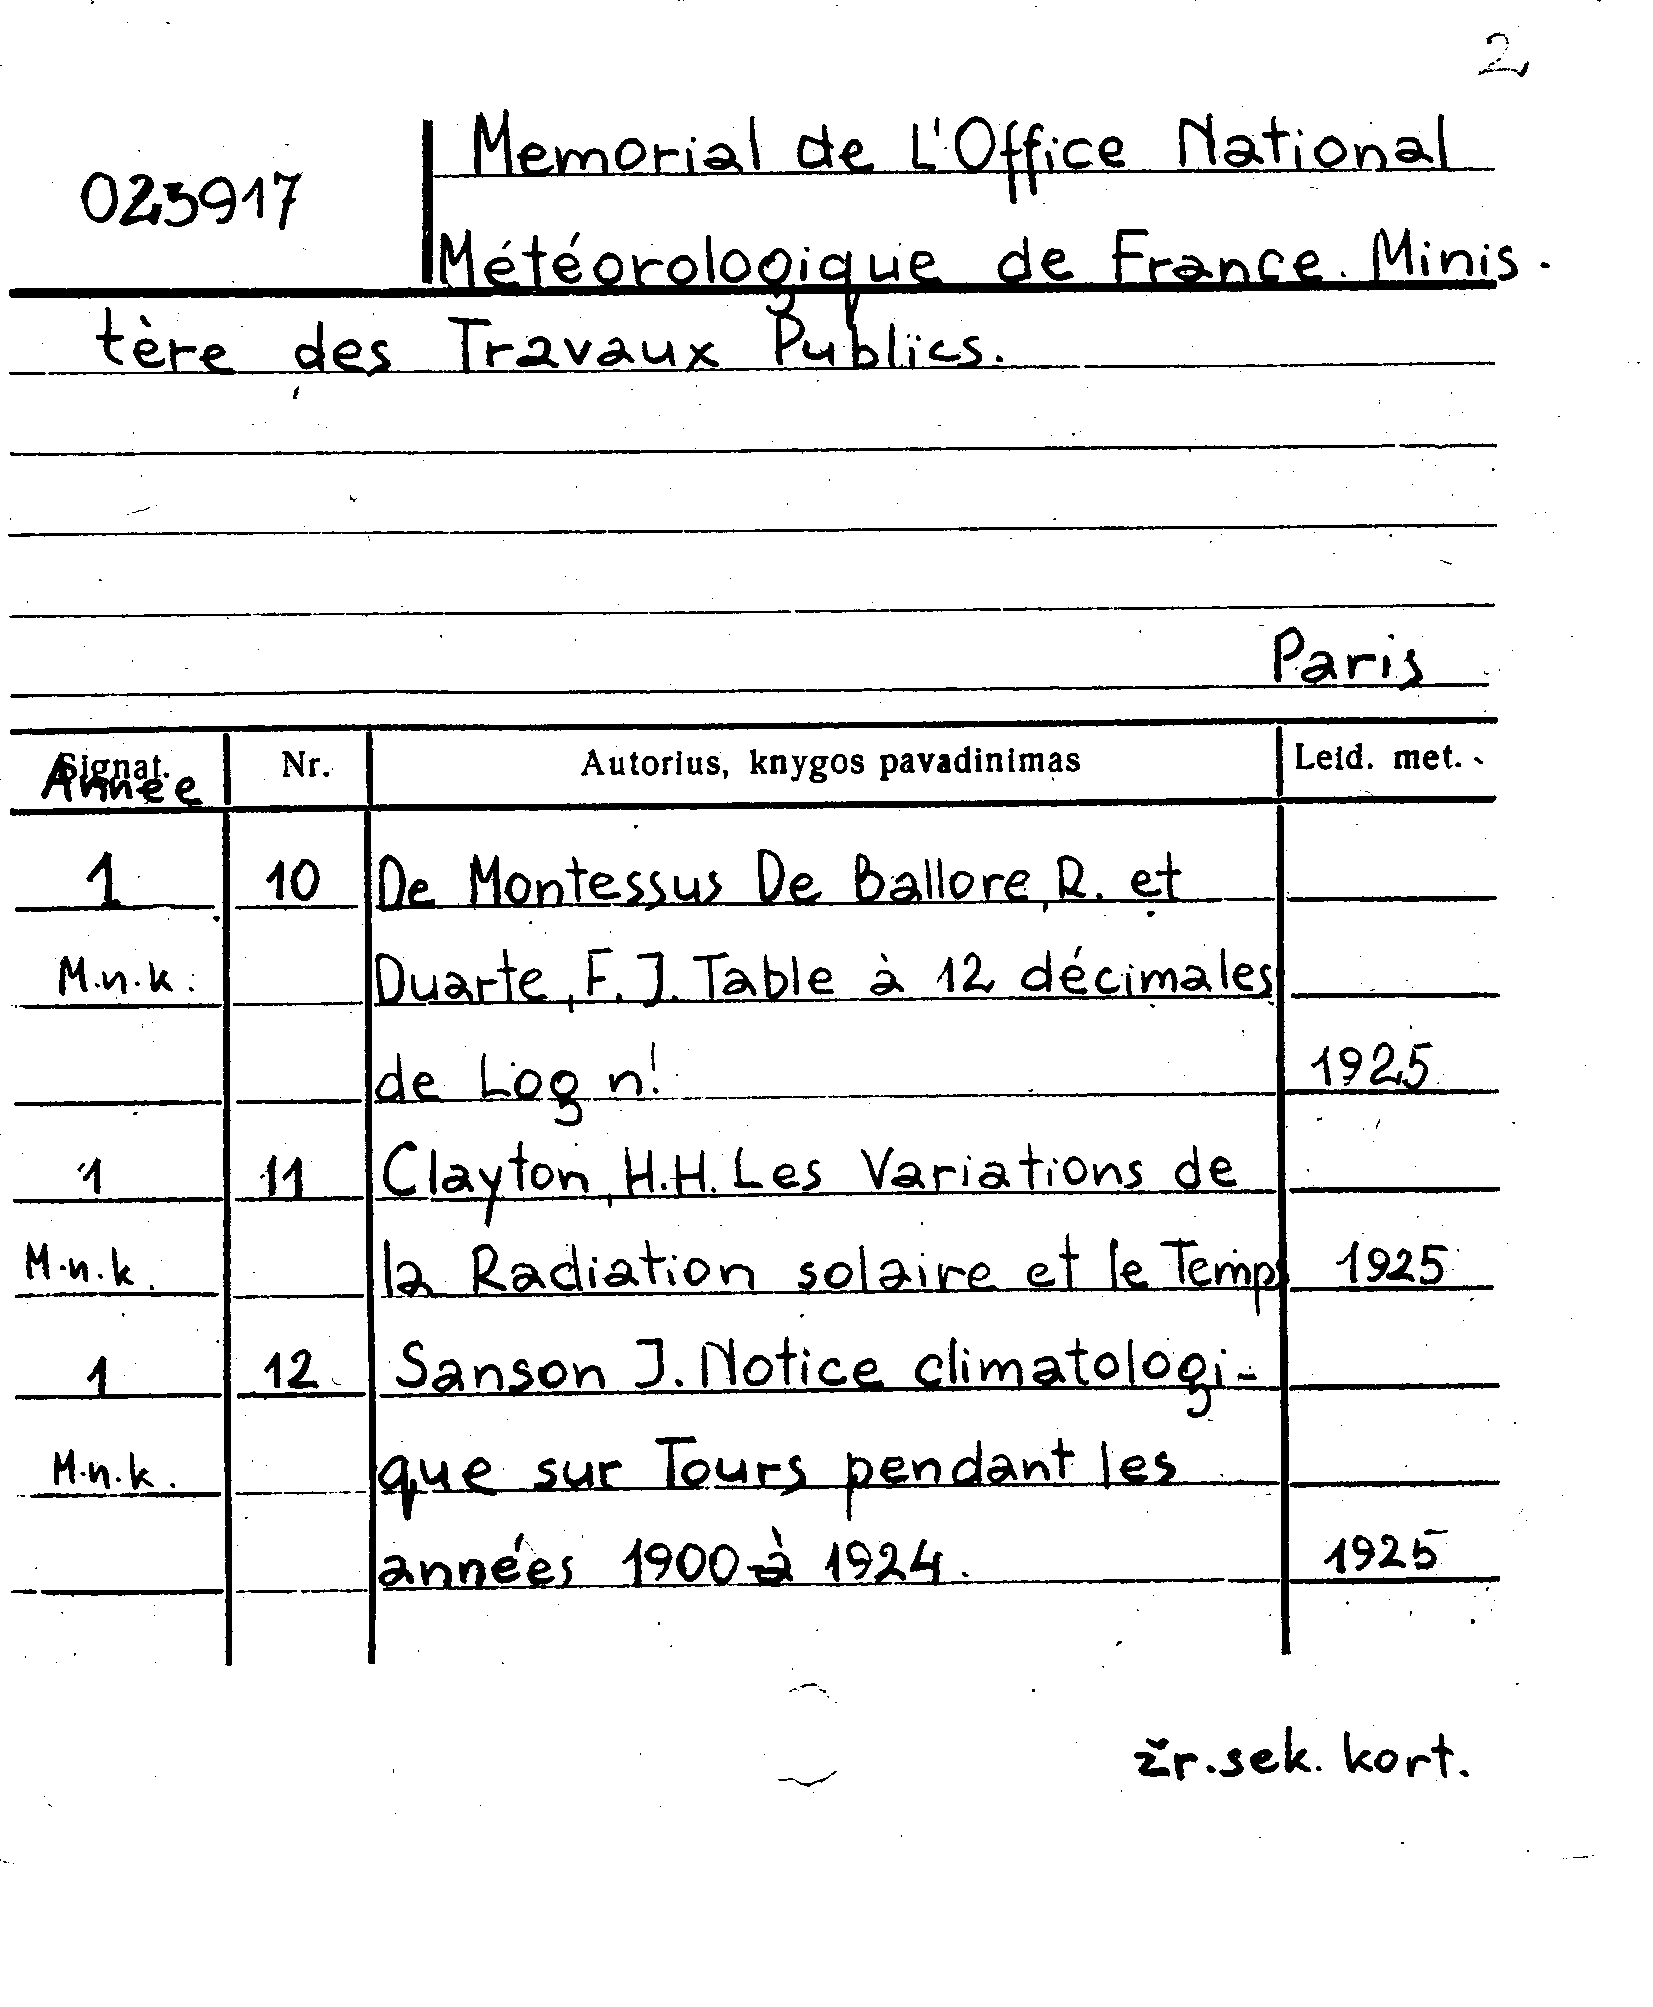 2
023917
Memorial de L'Office National
Météorologique de France. Minis.
tère des Travaux Publics.
Paris
Signat. Nr. Autorius, knygos pavadinimas Leid. met.
Année
1 10 De Montessus De Ballore, R. et
M.n.k. Duarte, F. J. Table à 12 décimales
de Log n! 1925
1 11 Clayton, H.H. Les Variations de
M.n.k. la Radiation solaire et le Temp 1925
1 12 Sanson J. Notice climatologi-
M.n.k. que sur Tours pendant les
années 1900 à 1924. 1925
žr. sek. kort.